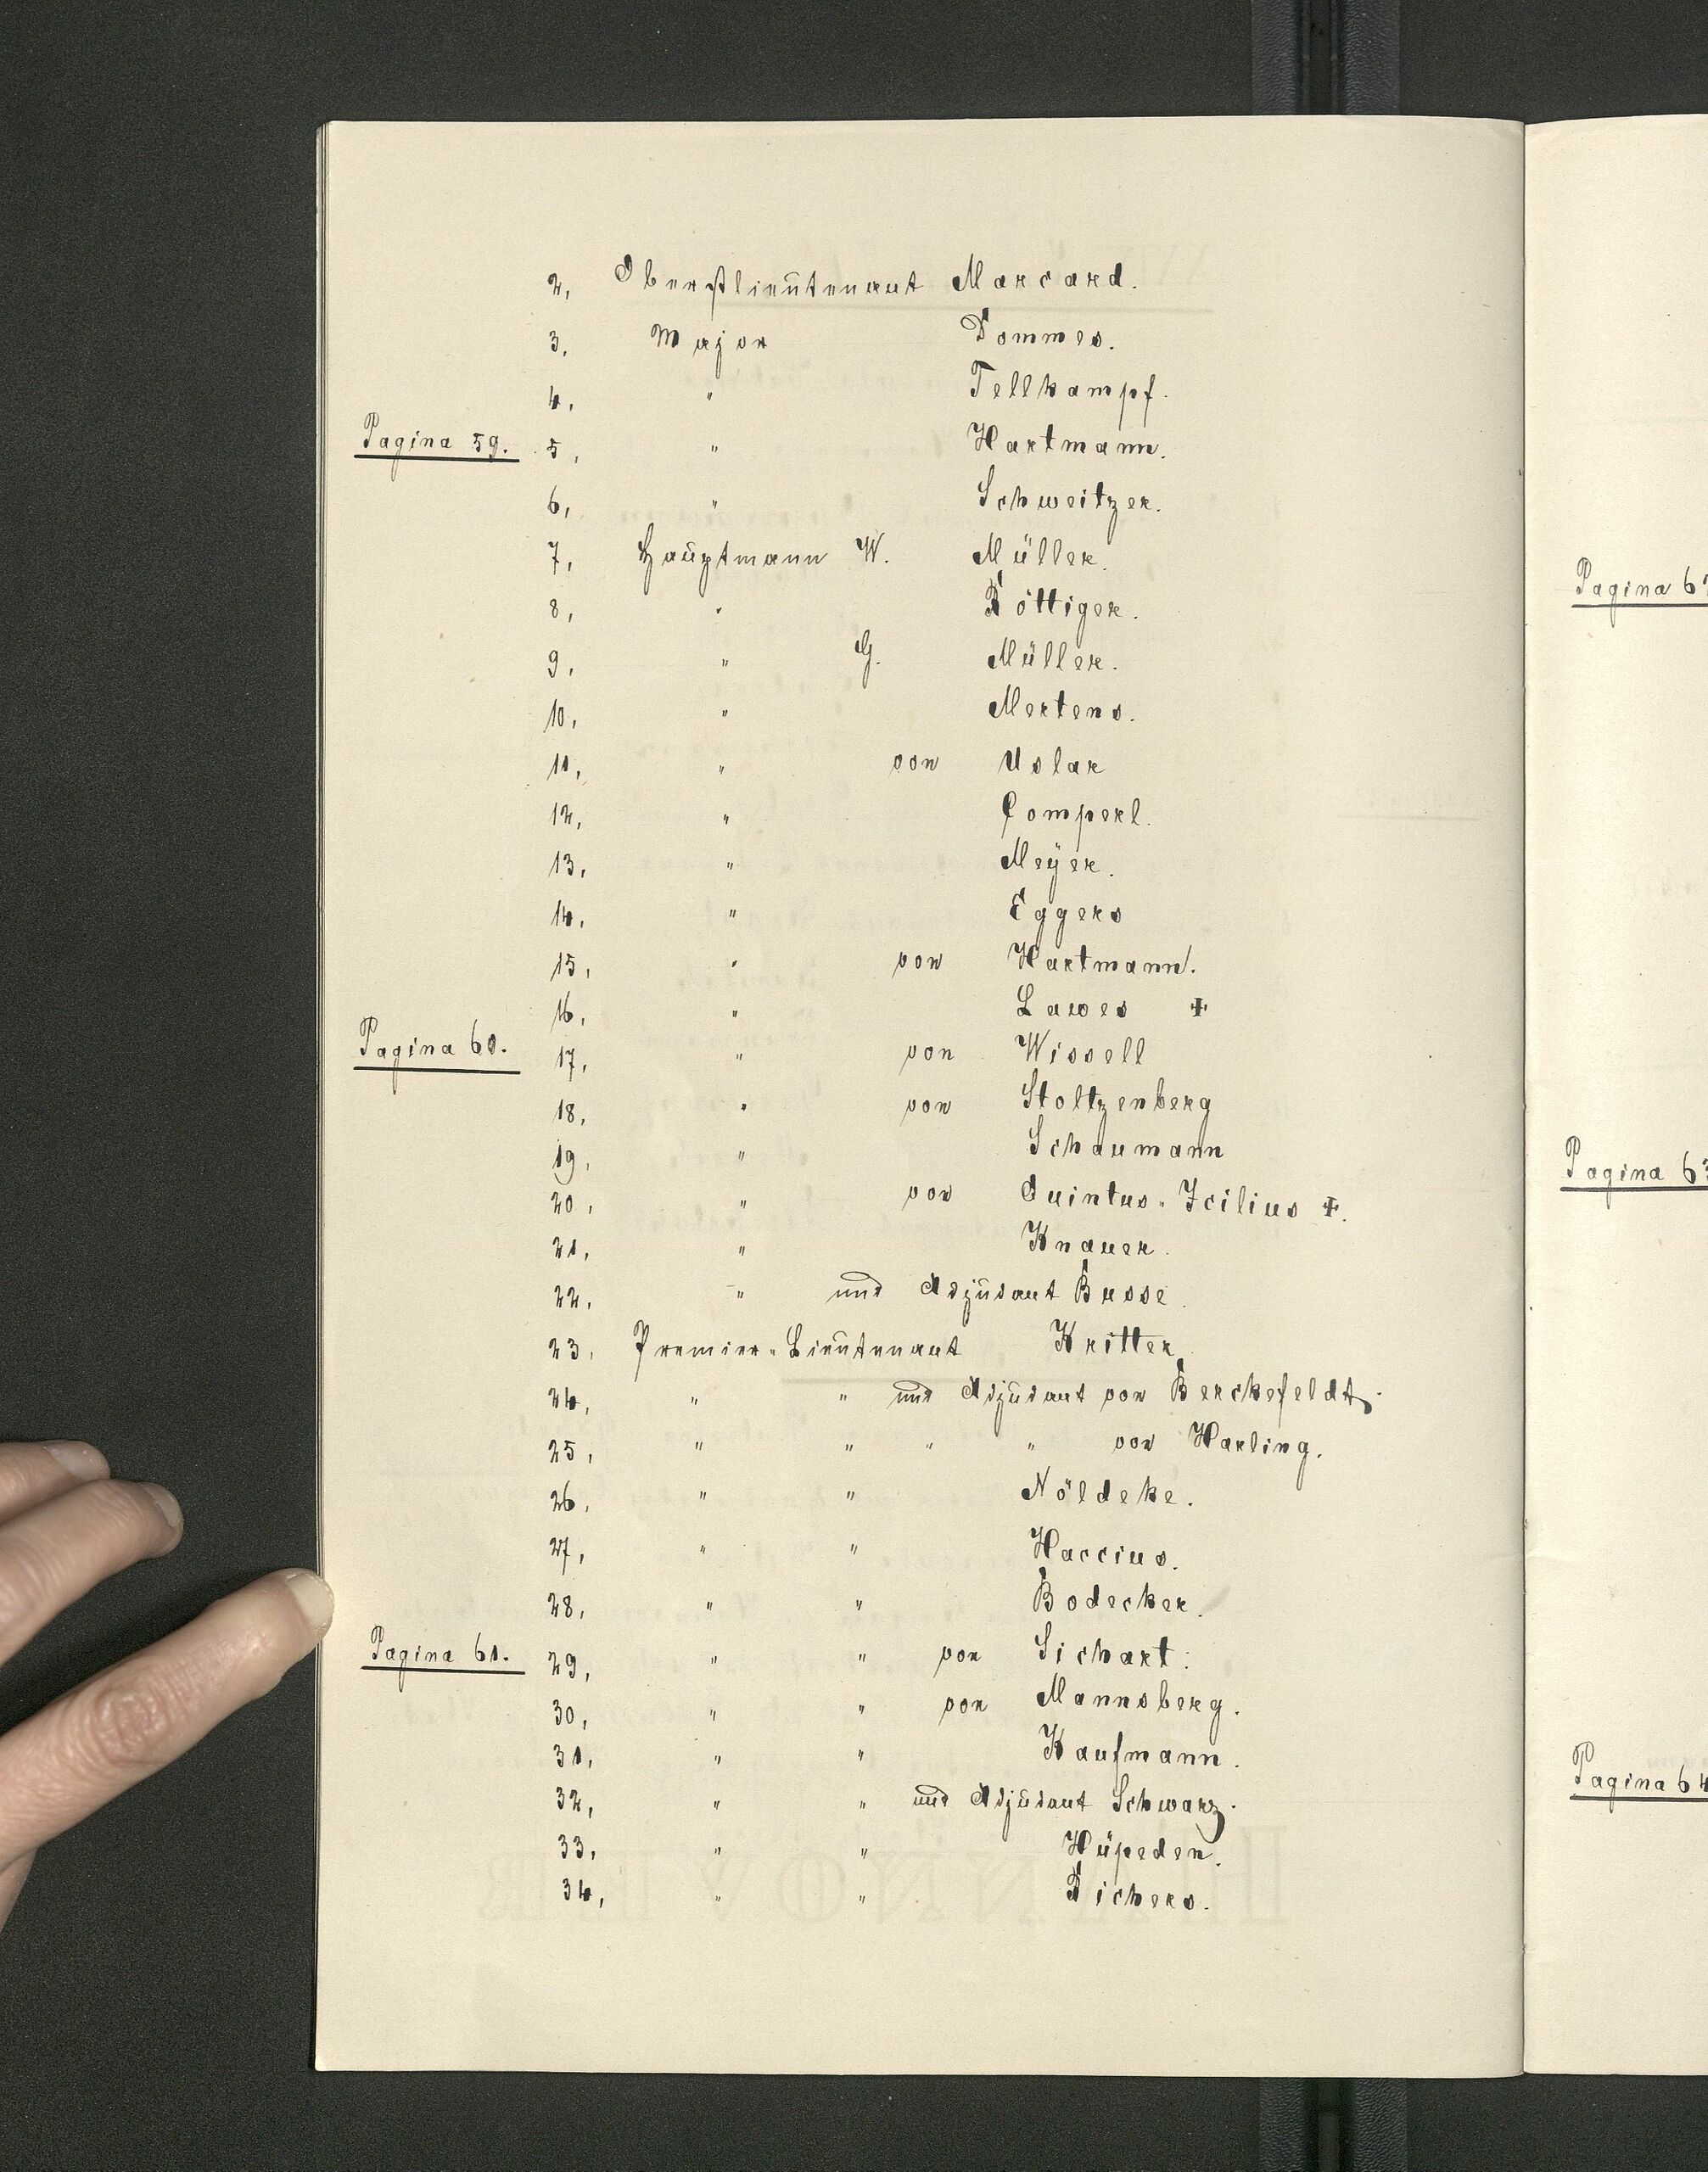 2, Oberstlieutenant Marcard.
3, Major Dommes.
4, " Tellkampf.
Pagina 59. 5, " Hartmann.
6, " Schweitzer.
7, Hauptmann W. Müller.
8, " Röttiger.
9, " G. Müller.
10, " Mertens.
11, " von Uslar
12, " Comperl.
13, " Meÿer.
14, " Eggers
15, " von Hartmann.
16, " Lawes ‡
Pagina 60. 17, " von Wissell
18, " von Stoltzenberg
19, " Schaumann
20, " von Quintus-Icilius ‡.
21, " Knauer.
22, " und Adjudant Busse.
23, Premier-Lieutenant Kritter.
24, " " und Adjudant von Berckefeldt.
25, " " " " von Harling.
26, " " Nöldeke.
27, " " Haccius.
28, " " Bodecker.
Pagina 61. 29, " " von Sichart.
30, " " von Mannsberg.
31, " " Kaufmann.
32, " " und Adjudant Schwarz.
33, " " Hüpeden.
34, " " Richers.
Pagina 6
Pagina 63
Pagina 64